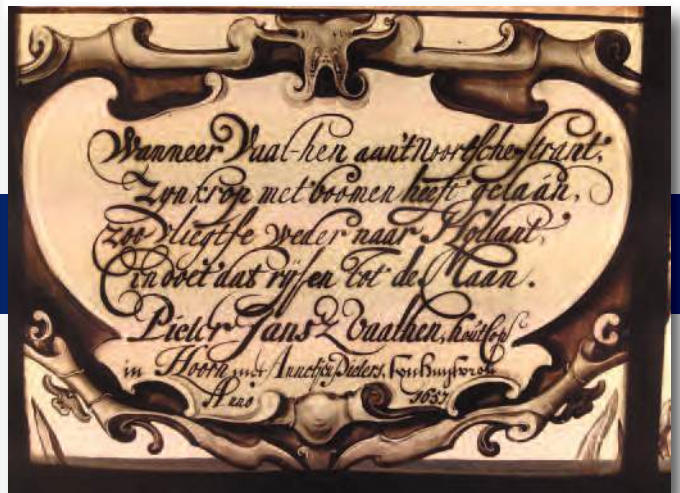 Wanneer Vaal-hen aan't Noortsche strant,
Zyn krop met boomen heeft gelaán,
zoo vliegtse weder naar Hollant,
En doet dat rijsen tot de Maan.
Pieter Jansz Vaalhen, houtkoper
in Hoorn met Annetjen Pieters, syn huysvrou
Anno 1657